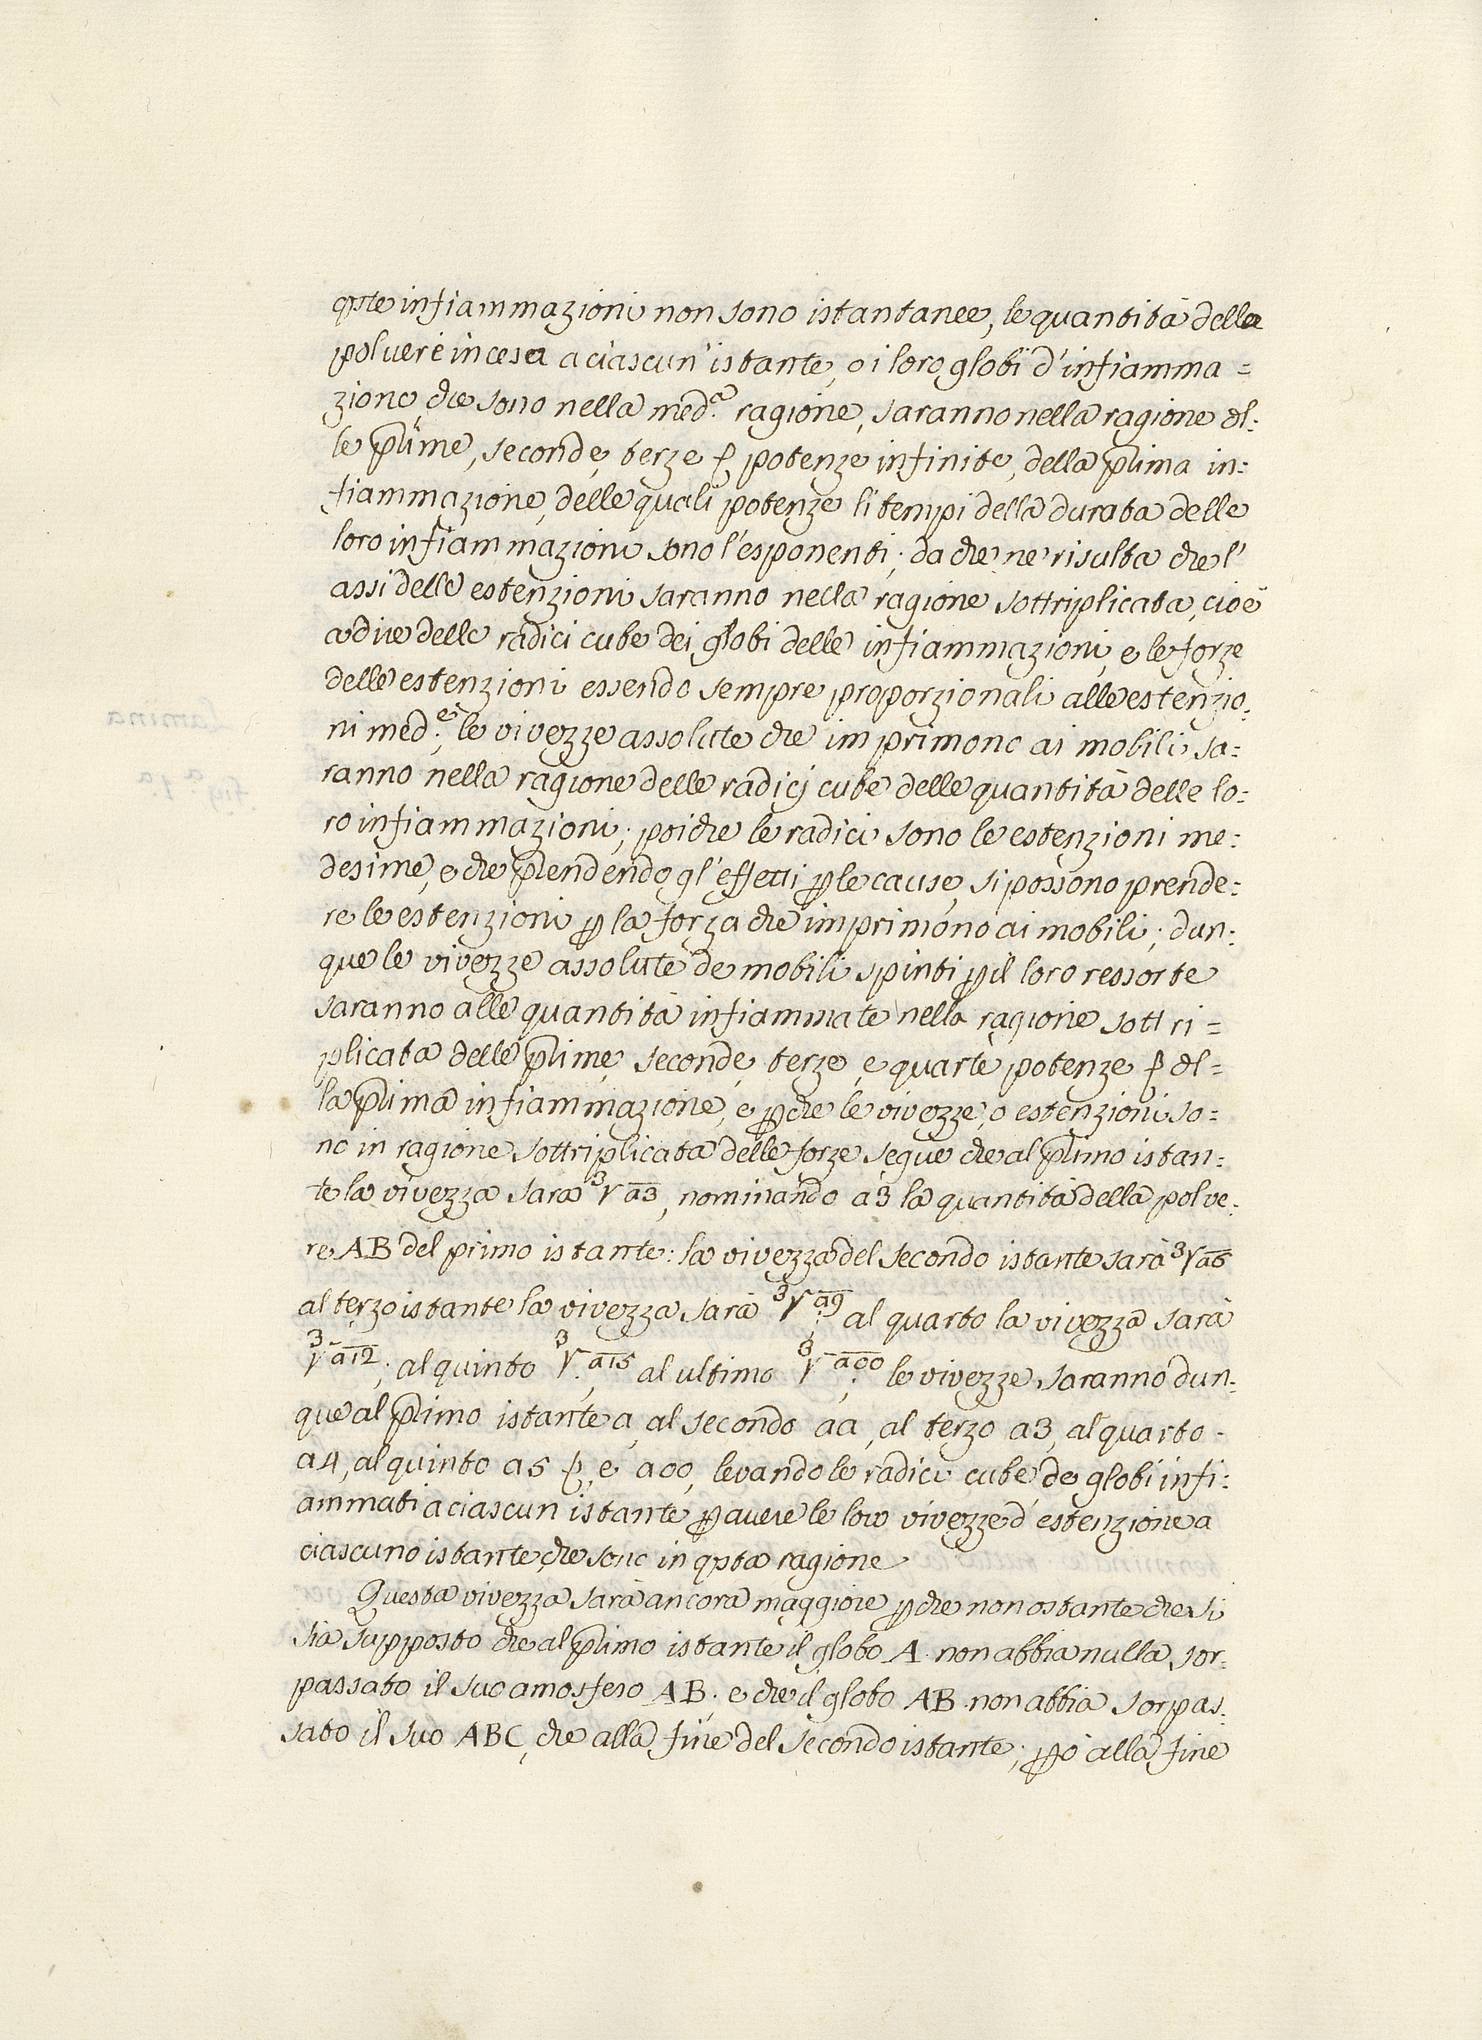 qste infiammazioni non sono istantanee, le quantità della
polvere incesa a ciascun'istante, o i loro globi d'infiamma=
zione, che sono nella med.a ragione, saranno nella ragione del:
le prime, seconde, terze &c potenze infinite, della prima in:
fiammazione, delle quali potenze li tempi della durata delle
loro infiammazioni sono l'esponenti; da che ne risulta che l'
assi delle estenzioni saranno nella ragione sottriplicata, cioè
a dire delle radici cube dei globi delle infiammazioni, e le forze
delle estenzioni essendo sempre proporzionali alle estenzio:
ni med.e, le vivezze assolute che imprimono ai mobili sa:
ranno nella ragione delle radici cube delle quantità delle lo:
ro infiammazioni; poiche le radici sono le estenzioni me:
desime, e che prendendo gl'effetti p le cause, si possono prende:
re le estenzioni p la forza che imprimono ai mobili; dun:
que le vivezze assolute de mobili spinti p il loro ressorte
saranno alle quantità infiammate nella ragione sottri=
plicata delle prime, seconde, terze, e quarte potenze &c del=
la prima infiammazione, e pche le vivezze, o estenzioni so=
no in ragione sottriplicata delle forze segue che al primo istan:
te la vivezza sarà ³√a3, nominando a3 la quantità della polve:
re AB del primo istante: la vivezza del secondo istante sarà ³√a6
al terzo istante la vivezza sarà ³√a9; al quarto la vivezza sarà
³√a12; al quinto ³√a15; al ultimo ³√a00; le vivezze saranno dun:
que al primo istante a, al secondo aa, al terzo a3, al quarto
a4, al quinto a5 &c, e a00, levando le radici cube de globi infi:
ammati a ciascun istante p avere le loro vivezze d'estenzione a
ciascuno istante, che sono in qsta ragione
Questa vivezza sarà ancora maggiore pche non ostante che si
sia supposto che al primo istante il globo A. non abbia nulla sor:
passato il suo amosfero AB. e che il globo AB. non abbia sorpas:
sato il suo ABC, che alla fine del secondo istante; pò alla fine